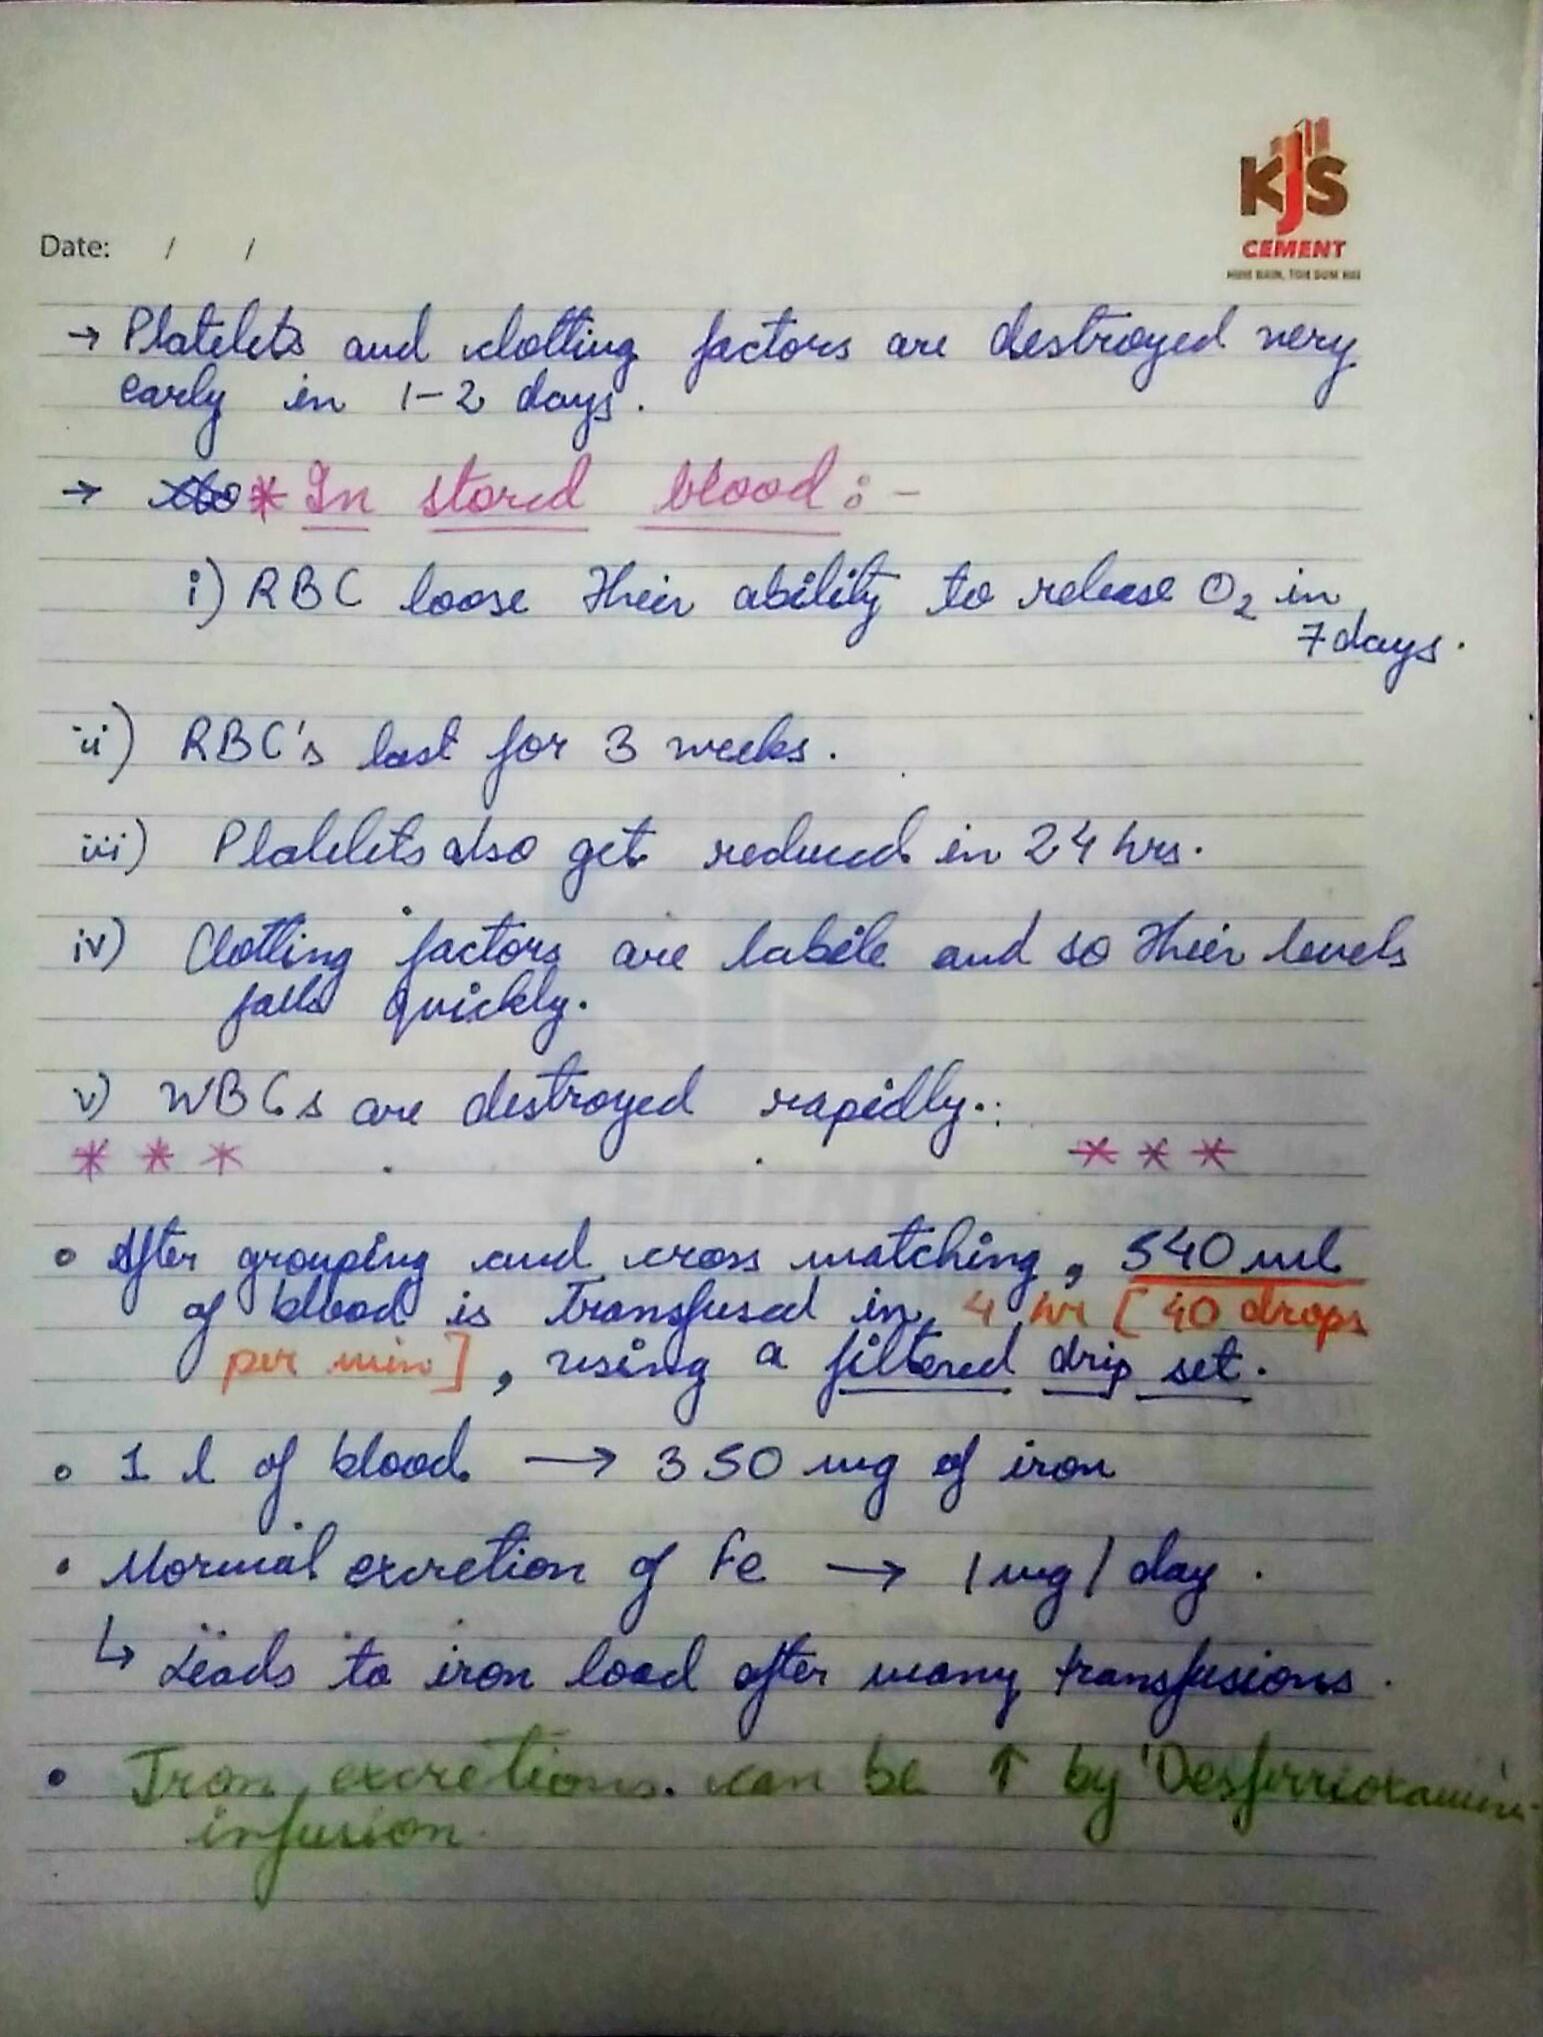 KJS
CEMENT
Date: / /
→ Platelets and clotting factors are destroyed very
early in 1-2 days.
→ * In stored blood :-
i) RBC loose their ability to release O2 in
7 days.
ii) RBC's last for 3 weeks.
iii) Platelets also get reduced in 24 hrs.
iv) Clotting factors are labile and so their levels
falls quickly.
v) WBCs are destroyed rapidly.
* * * * * *
• After grouping and cross matching, 540 ml
of blood is transfused in 4 hr [40 drops
per min], using a filtered drip set.
• 1 l of blood → 350 mg of iron
• Normal excretion of Fe → 1 mg / day.
↳ Leads to iron load after many transfusions.
• Iron excretions can be ↑ by 'Desferrioxamine
infusion